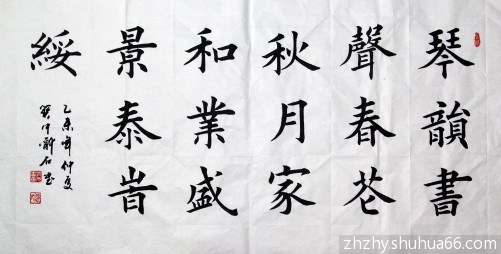 琴韻書
聲春花
秋月家
和業盛
景泰旹
綏
乙未年仲夏
zhzhy.shuhua66.com